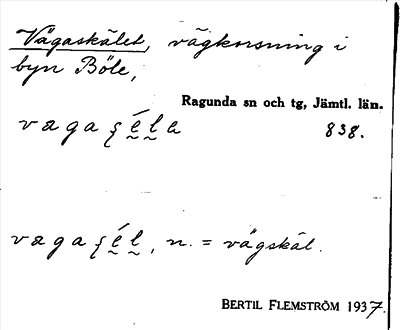 Vägaskälet, vägkorsning i
byn Böle,
Ragunda sn och tg, Jämtl. län.
vægaʂé̬l̬a 838.
vægaʂé̬l̬, n. = vägskäl.
BERTIL FLEMSTRÖM 1937.